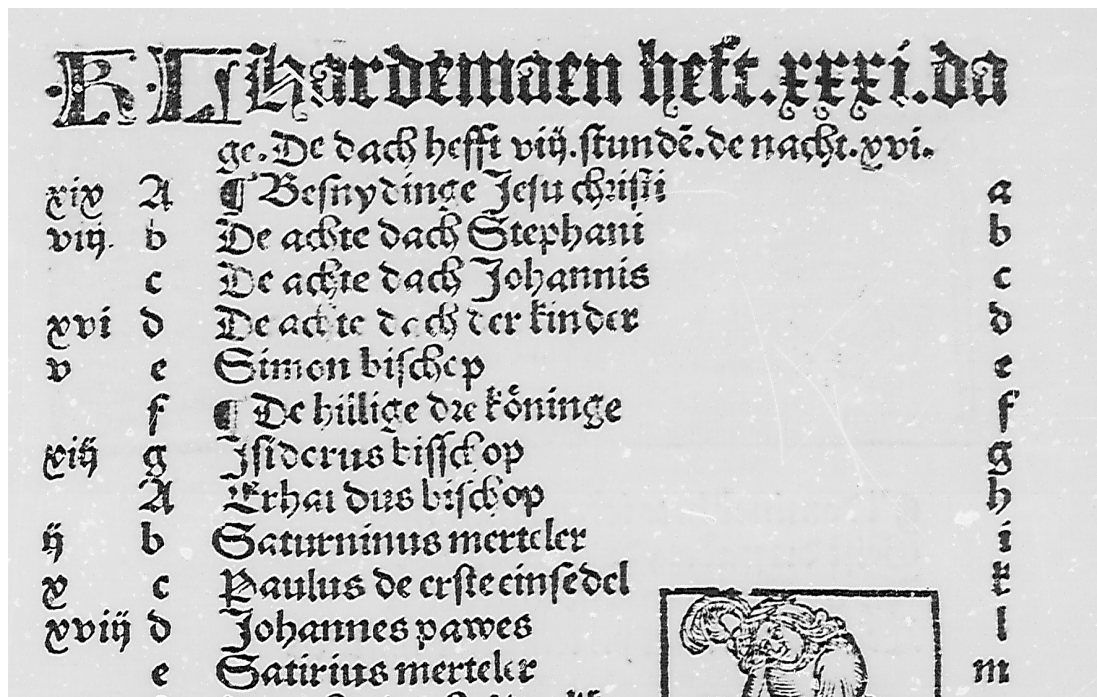 KL Hardemaen heft.xxxi.da
ge.De dach hefft viij.stundē.de nacht.xvi.
xix A ¶ Besnydinge Jesu christi a
viij. b De achte dach Stephani b
c De achte dach Johannis c
xvi d De achte dach der kinder d
v e Simon bischop e
f ¶ De hillige dre köninge f
xiij g Isiderus bisschop g
A Erhardus bischop h
ij b Saturninus merteler i
x c Paulus de erste einsedel k
xviij d Johannes pawes l
e Satirius merteler m